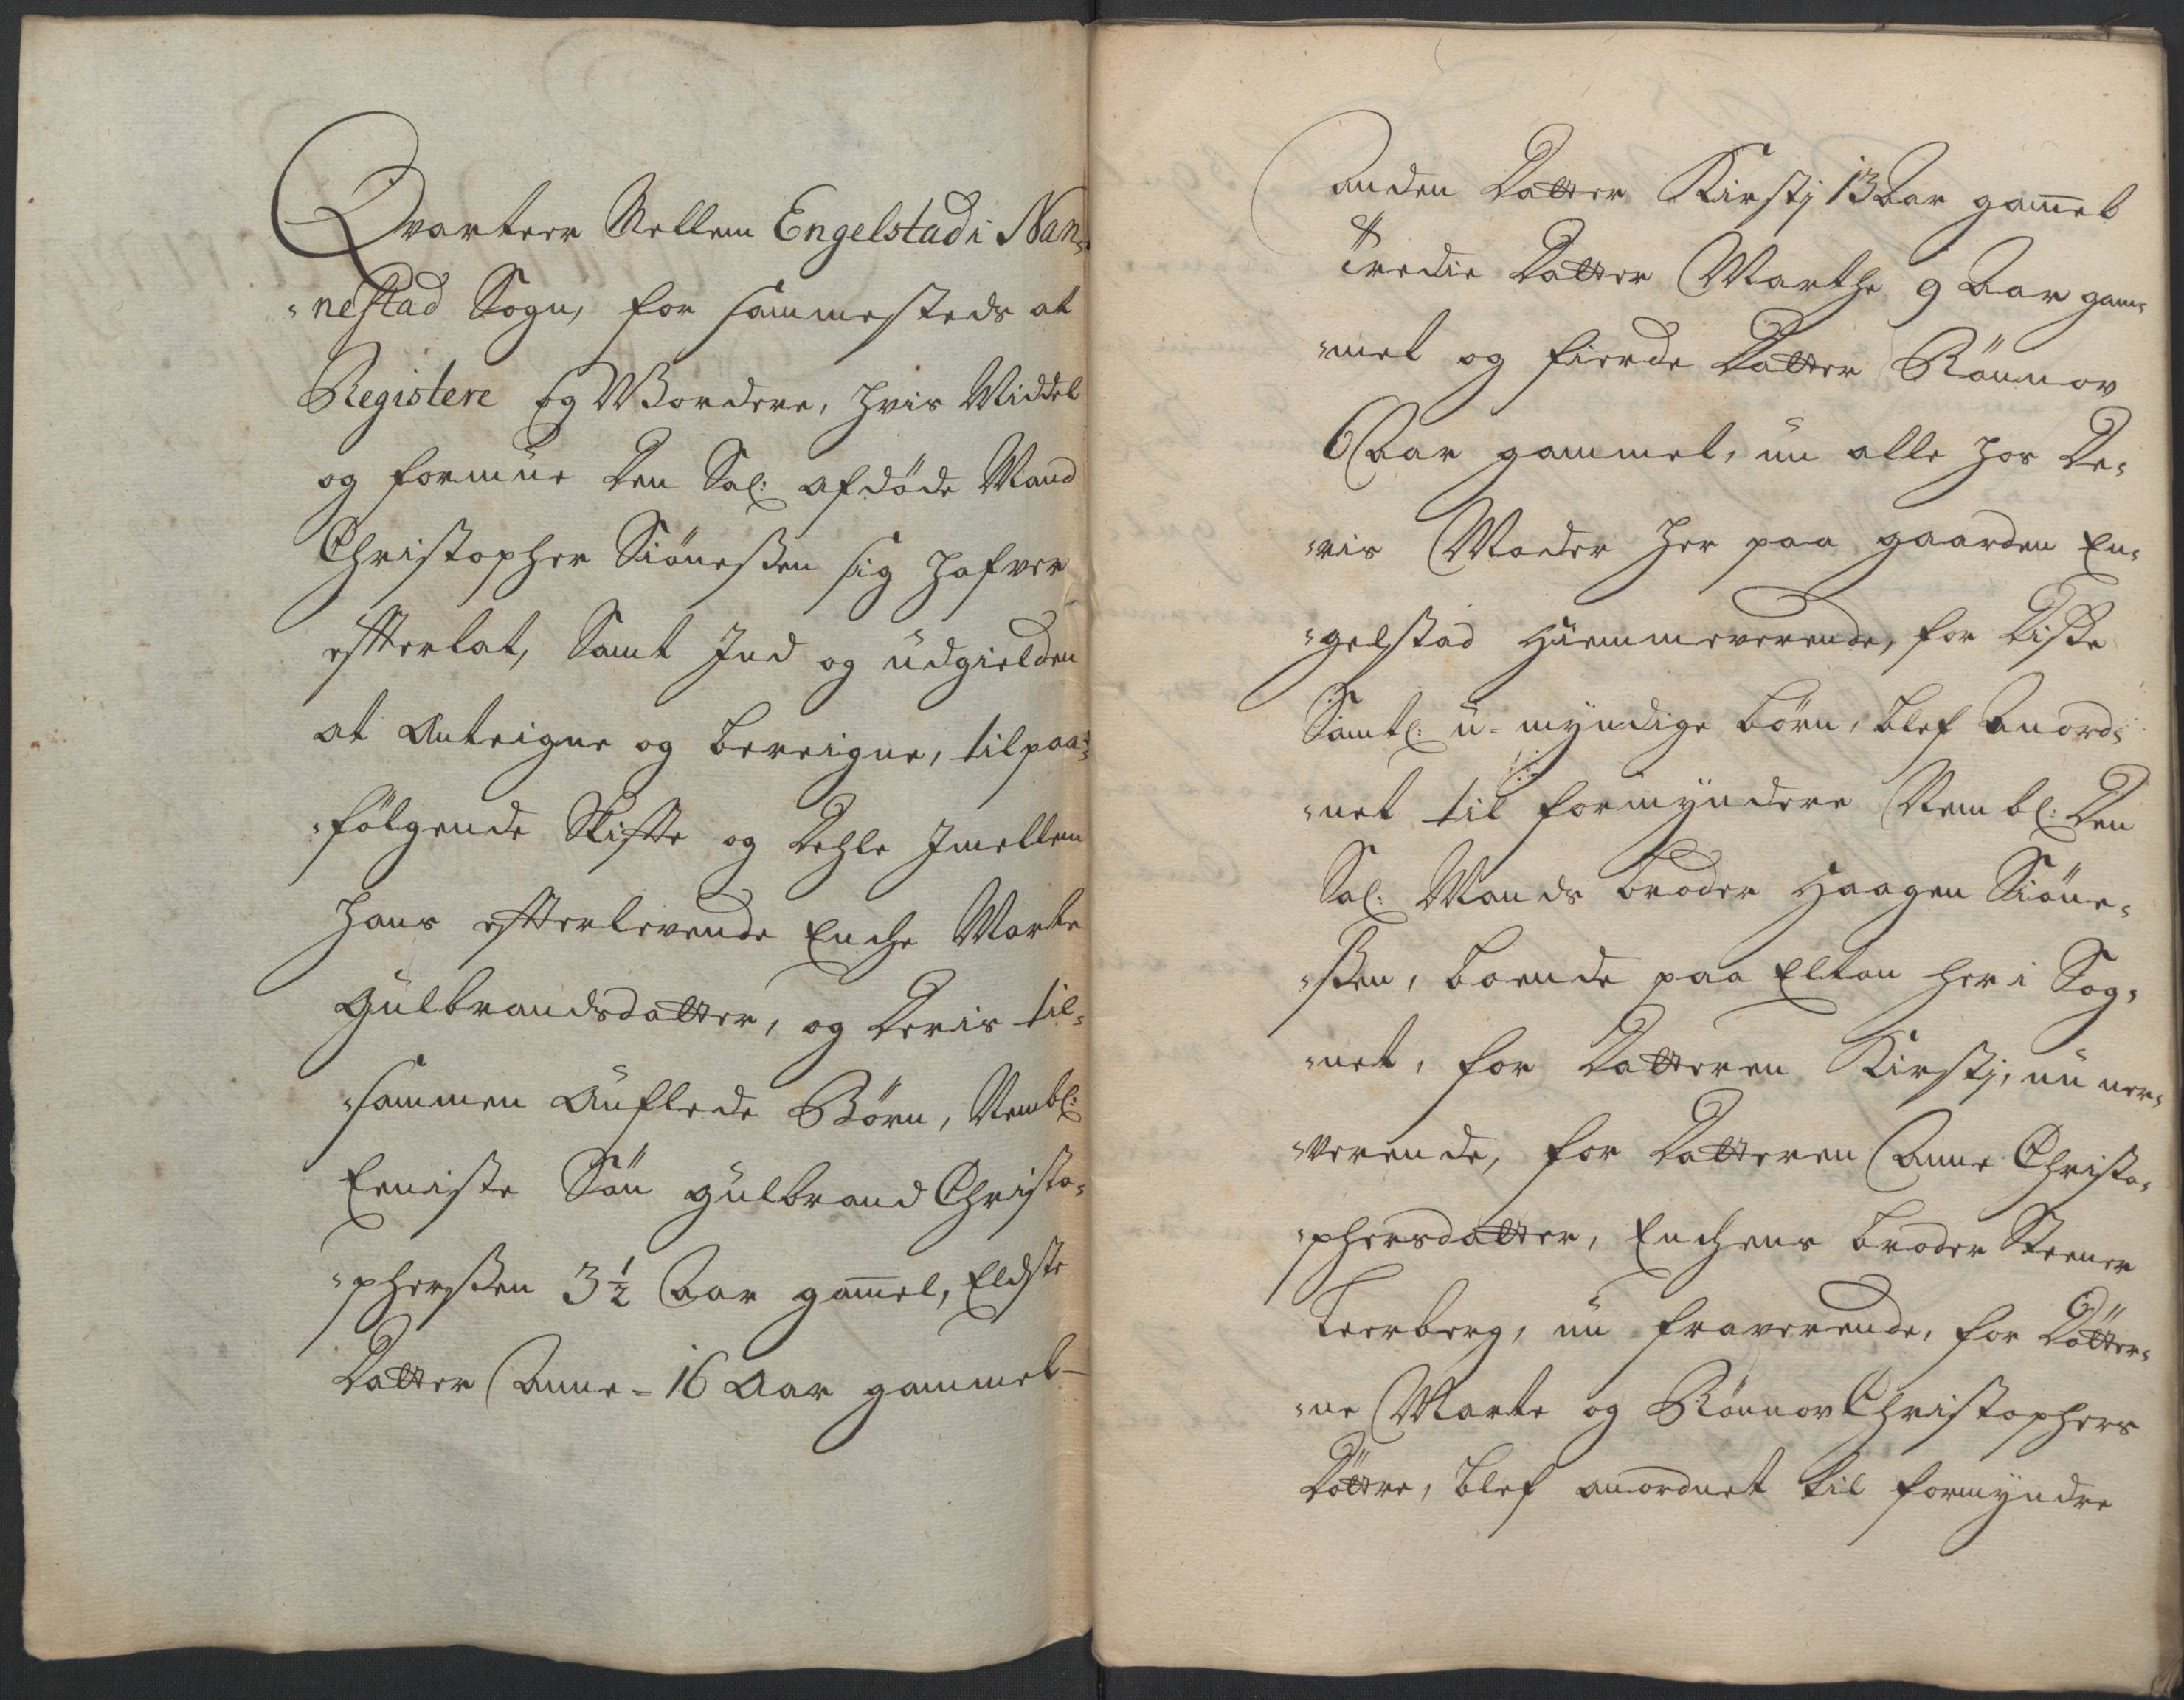 Qvarteer Mellem Engelstad i Nan-
-nestad Sogn, for sammesteds at
Registere og Wordere, hvis Middel
og formue den Sal: afdöde Mand
Christopher Siöneßen sig hafver
efterlat, Samt Ind og üdgielden
at Anteigne og bereigne, til paa-
-fölgende Skifte og Dehle Imellem
hans efterlevende Enche Marte
Gulbrandsdatter, og deris til-
-sammen Auflede Börn, Nembl:
Eeniste Sön Gulbrand Christo-
-pherßen 3½ Aar gam̅el, Eldste
Datter Anne - 16 Aar gammel -
anden Datter Kirstj 13 Aar gam̅el
tredie Datter Marthe 9 Aar gam-
-mel og fierde Datter Rönnov
6 Aar gammel, nu alle hos De-
-ris Moder her paa gaarden En-
-gelstad hiemmeverende, for diße
Samtl: u-myndige börn, blef Anord-
-net til formyndere Nembl: Den
Sal: Mands broder Haagen Siöne-
-ßen, boende paa Elton her i Sog-
-net, for Datteren Kirstj, nu ner-
-verende, for Datteren Anne Christo-
-phersdatter, Enchens broder Steener
Leerberg, nu fraverende, for Dötter-
-ne Marte og Rönnov Christophers
Döttre, blef anordnet til formyndre